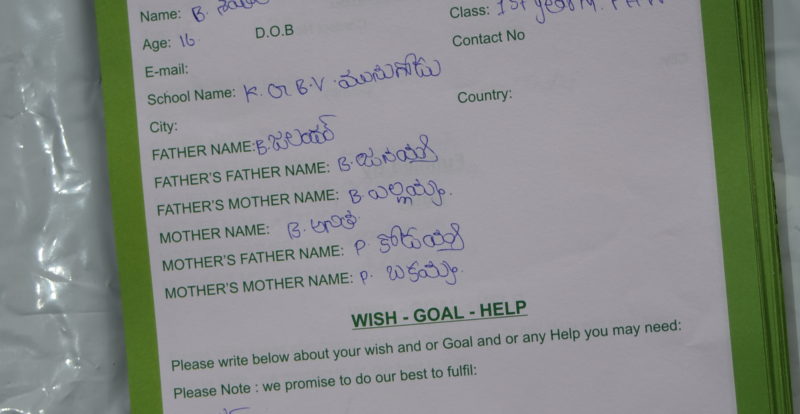 Name: B.
Class: 1st year
Age: 16
D.O.B
Contact No
E-mail:
School Name: K. G B.V. మునుగోడు
City:
Country:
FATHER NAME: B.
FATHER'S FATHER NAME: B.
FATHER'S MOTHER NAME: B. ఎల్లమ్మ.
MOTHER NAME: B.
MOTHER'S FATHER NAME: P.
MOTHER'S MOTHER NAME: P. బకమ్మ.
WISH - GOAL - HELP
Please write below about your wish and or Goal and or any Help you may need:
Please Note : we promise to do our best to fulfil: